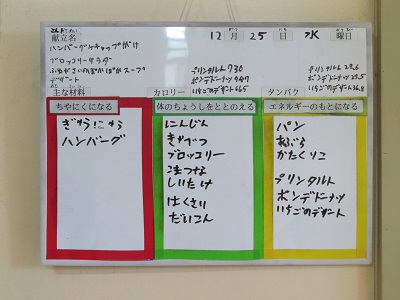 こんだてめい
献立名
12月25日水曜日
ハンバーグケチャップがけ
ブロッコリーサラダ
デザート
プリンタルト730
ポンデドーナツ747
いちごのデザート665
プリンタルト27.6
主な材料
カロリー
タンパク
ちやにくになる
体のちょうしをととのえる
エネルギーのもとになる
ぎゅうにゅう
ハンバーグ
にんじん
きゃべつ
ブロッコリー
こまつな
しいたけ
はくさい
だいこん
パン
あぶら
かたくりこ
プリンタルト
ポンデドーナツ
いちごのデザート